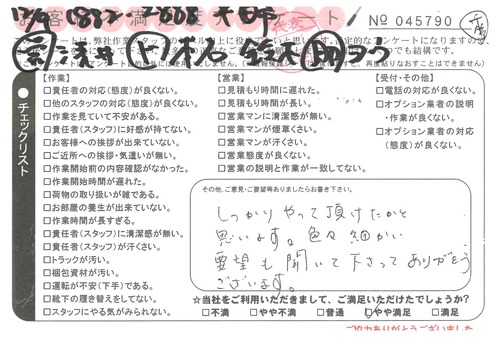 お客様満足度アンケート
No 045790
チェックリスト
【作業】
□責任者の対応(態度)が良くない。
□他のスタッフの対応(態度)が良くない。
□作業を見ていて不安がある。
□責任者(スタッフ)に好感が持てない。
□お客様への挨拶が出来ていない。
□ご近所への挨拶・気遣いが無い。
□作業開始前の内容確認がなかった。
□作業開始時間が遅れた。
□荷物の取り扱いが雑である。
□お部屋の養生が出来ていない。
□作業時間が長すぎる。
□責任者(スタッフ)に清潔感が無い。
□責任者(スタッフ)が汗くさい。
□トラックが汚い。
□梱包資材が汚い。
□運転が不安(下手)である。
□靴下の履き替えをしてない。
□スタッフにやる気がみられない。
【営業】
□見積もり時間に遅れた。
□見積もり時間が長い。
□営業マンに清潔感が無い。
□営業マンが煙草くさい。
□営業マンが汗くさい。
□営業態度が良くない。
□営業の説明と作業が一致してない。
【受付・その他】
□電話の対応が良くない。
□オプション業者の説明・作業が良くない。
□オプション業者の対応(態度)が良くない。
その他、ご意見・ご要望等ありましたらお書き下さい。
しっかりやって頂けたかと
思います。色々細かい
要望も聞いて下さってありがとう
ございます。
☆当社をご利用いただきまして、ご満足いただけたでしょうか?
□不満 □やや不満 □普通 □やや満足 □満足
ご協力ありがとうございました